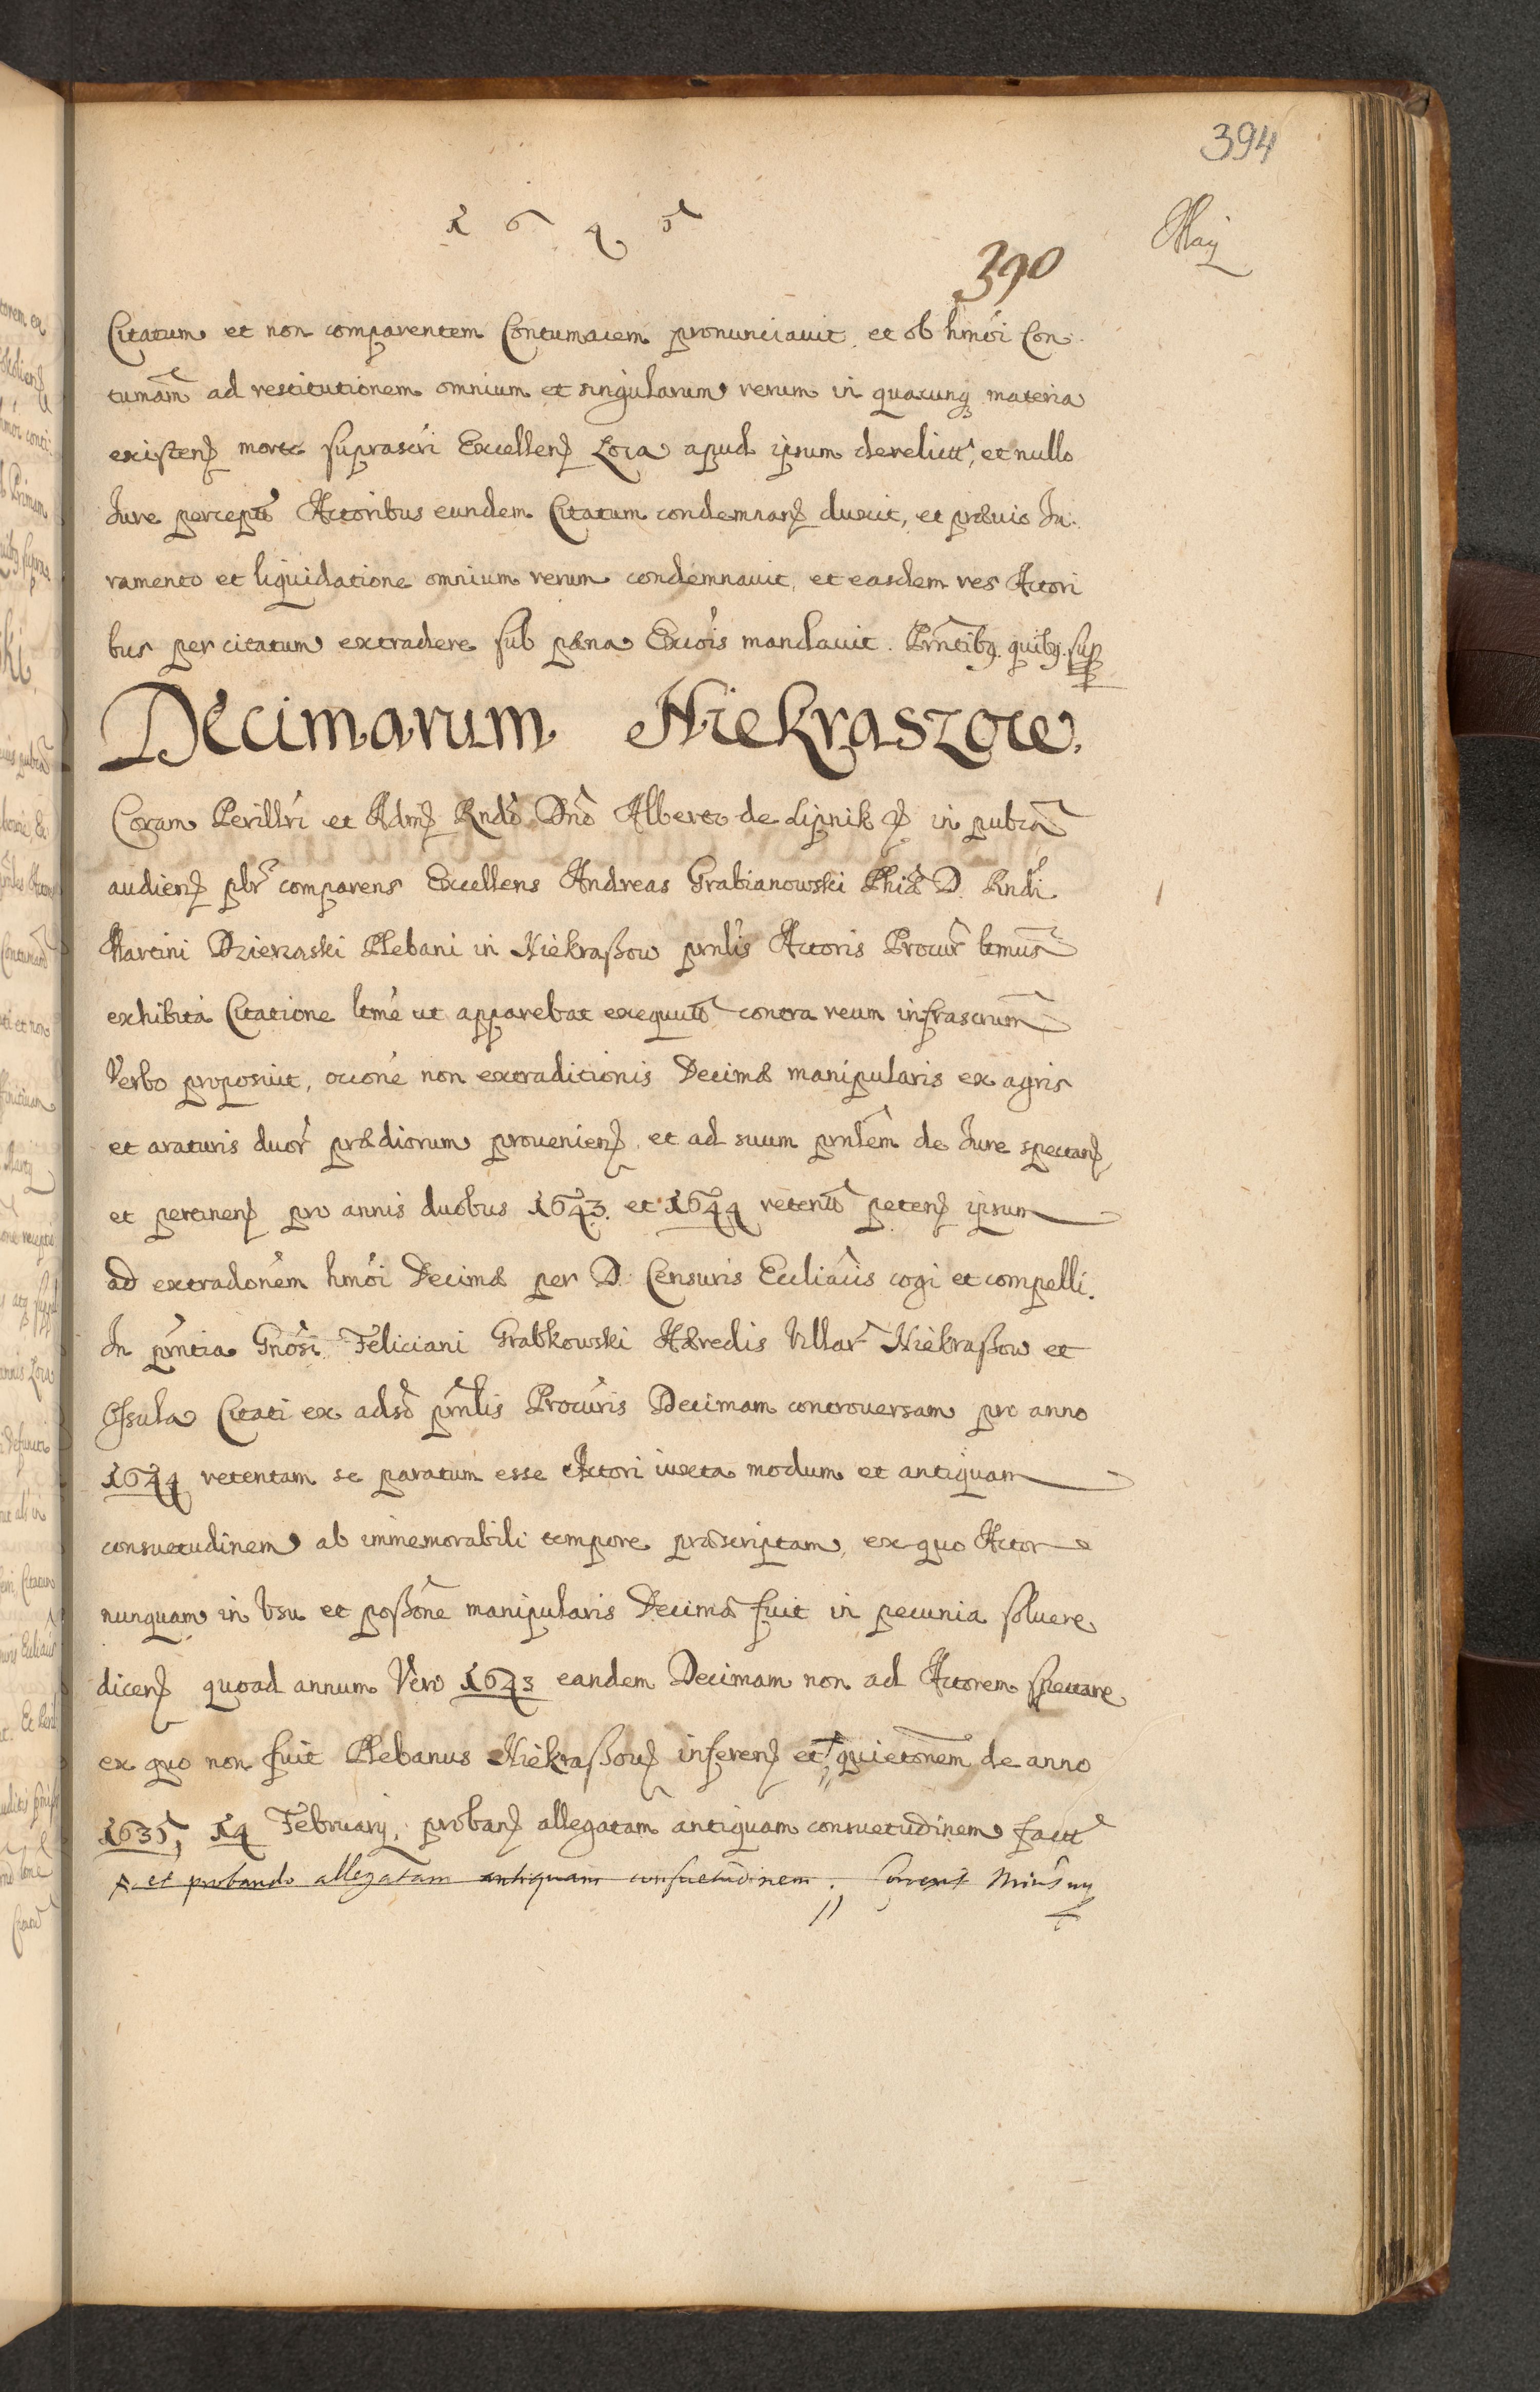 394
1645
Maij
390
Citatum et non comparentem Contumacem pronunciauit, et ob hmõi Con-
tumãm ad restitutionem omnium et singularum rerum in quacunq materia
existenꝫ morte suprascri Excellenꝫ Loca apud ipsum derelictꝭ, et nullo
Jure perceptꝭ Actoribus eundem Citatum condemnanꝫ duxit, et præuio Ju-
ramento et liquidatione omnium rerum condemnauit, et easdem res Actori
bus per citatum extradere sub pæna Excõis mandauit. Prñtibꝫ quibꝫ supꝫ
Decimarum Niekraszow.
Coram Perillri et Admꝫ Rndo Dño Alberto de Lipnik ꝫ in pubca
audienꝫ plr comparens Excellens Andreas Grabianowski Phiæ D. Rndi
Martini Dzierzaski Plebani in Niekraßow prnlis Actoris Procur ltmus
exhibita Citatione ltme ut apparebat exequutꝭ contra reum infrascrum
Verbo proposuit, occone non extraditionis Decimæ manipularis ex agris
et araturis duor prædiorum prouenienꝫ et ad suum prnlem de Jure spectanꝫ
et pertinenꝫ pro annis duobus 1643. et 1644 retentꝭ petenꝫ ipsum
ad extradonem hmõi Decimæ per D. Censuris Eccliacis cogi et compelli.
In prñtia Gnosi Feliciani Grabkowski Hæredis Villar Niekraßow et
Ossula Citati ex adso prnlis Procuris Decimam controuersam pro anno
1644 retentam se paratum esse Actori iuxta modum et antiquam
consuetudinem ab immemorabili tempore præscriptam, ex quo Actor
nunquam in Vsu et poßone manipularis Decimæ fuit in pecunia soluere
dicenꝫ quoad annum Vero 1643 eandem Decimam non ad Actorem spectare
ex quo non fuit Plebanus Niekraßouꝫ inferenꝫ et quietonem de anno
1635, 14 February, probanꝫ allegatam antiquam consuetudinem factꝭ
et probando allegatam antiquam consuetudinem.